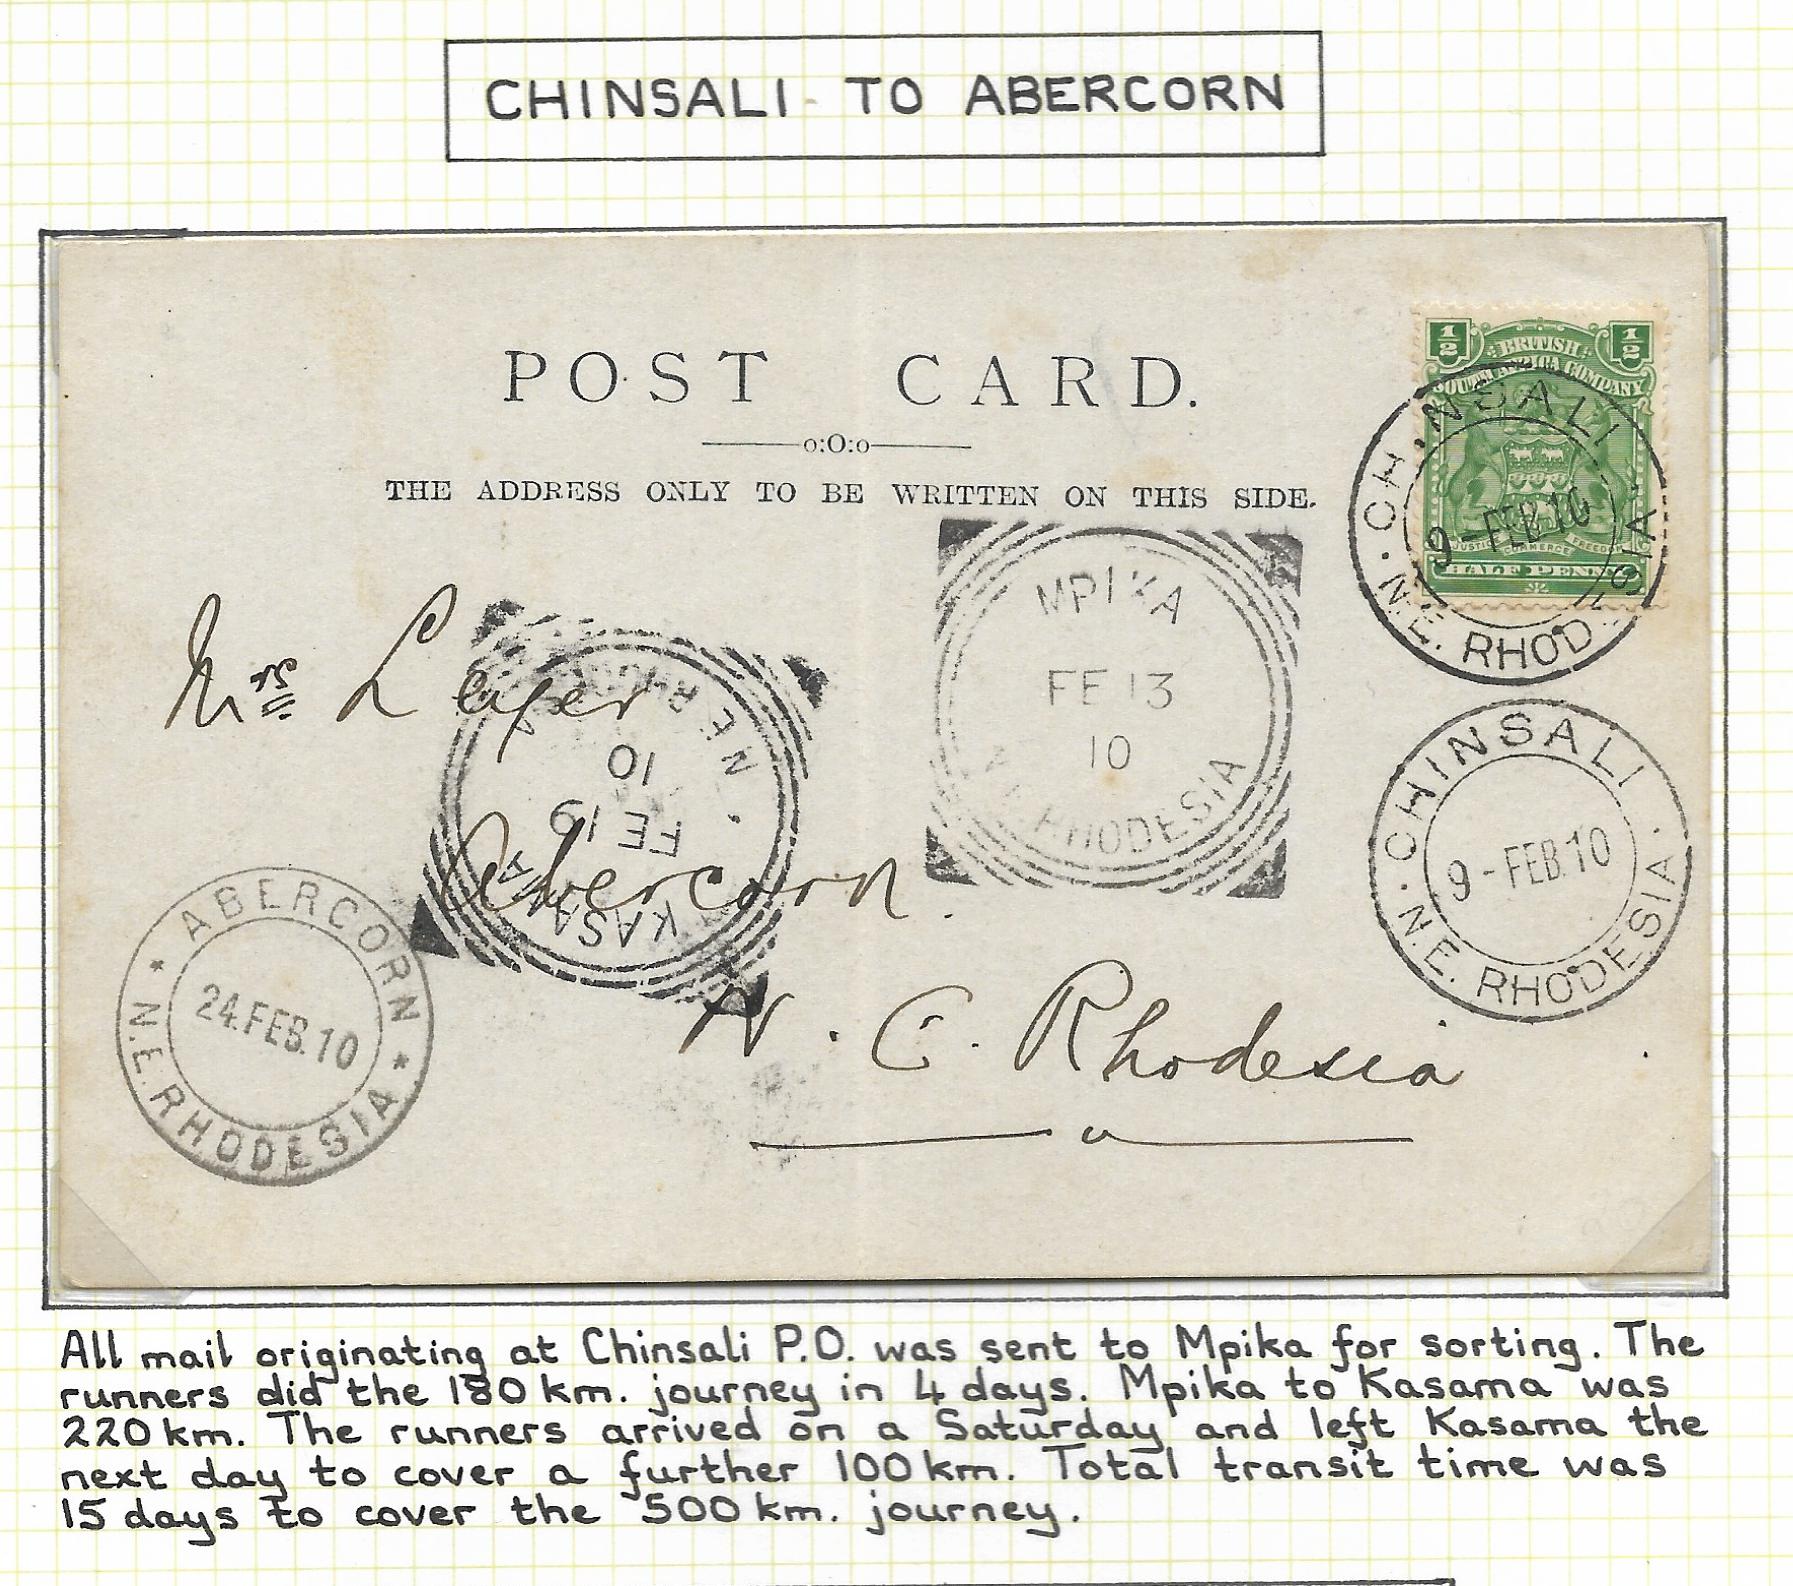 CHINSALI TO ABERCORN
POST CARD.
THE ADDRESS ONLY TO BE WRITTEN ON THIS SIDE.
1/2 1/2
BRITISH
SOUTH AFRICA COMPANY
JUSTICE COMMERCE FREEDOM
HALF PENNY
CHINSALI
9-FEB.10
N.E. RHODESIA
MPIKA
FE 13
10
N.E. RHODESIA
Mrs
KASAMA
FE 19
10
N.E. RHODESIA
Abercorn.
CHINSALI
9-FEB.10
N.E. RHODESIA
ABERCORN
24.FEB.10
N.E. RHODESIA
N. E. Rhodesia
All mail originating at Chinsali P.O. was sent to Mpika for sorting. The
runners did the 180 km. journey in 4 days. Mpika to Kasama was
220 km. The runners arrived on a Saturday and left Kasama the
next day to cover a further 100 km. Total transit time was
15 days to cover the 500 km. journey.